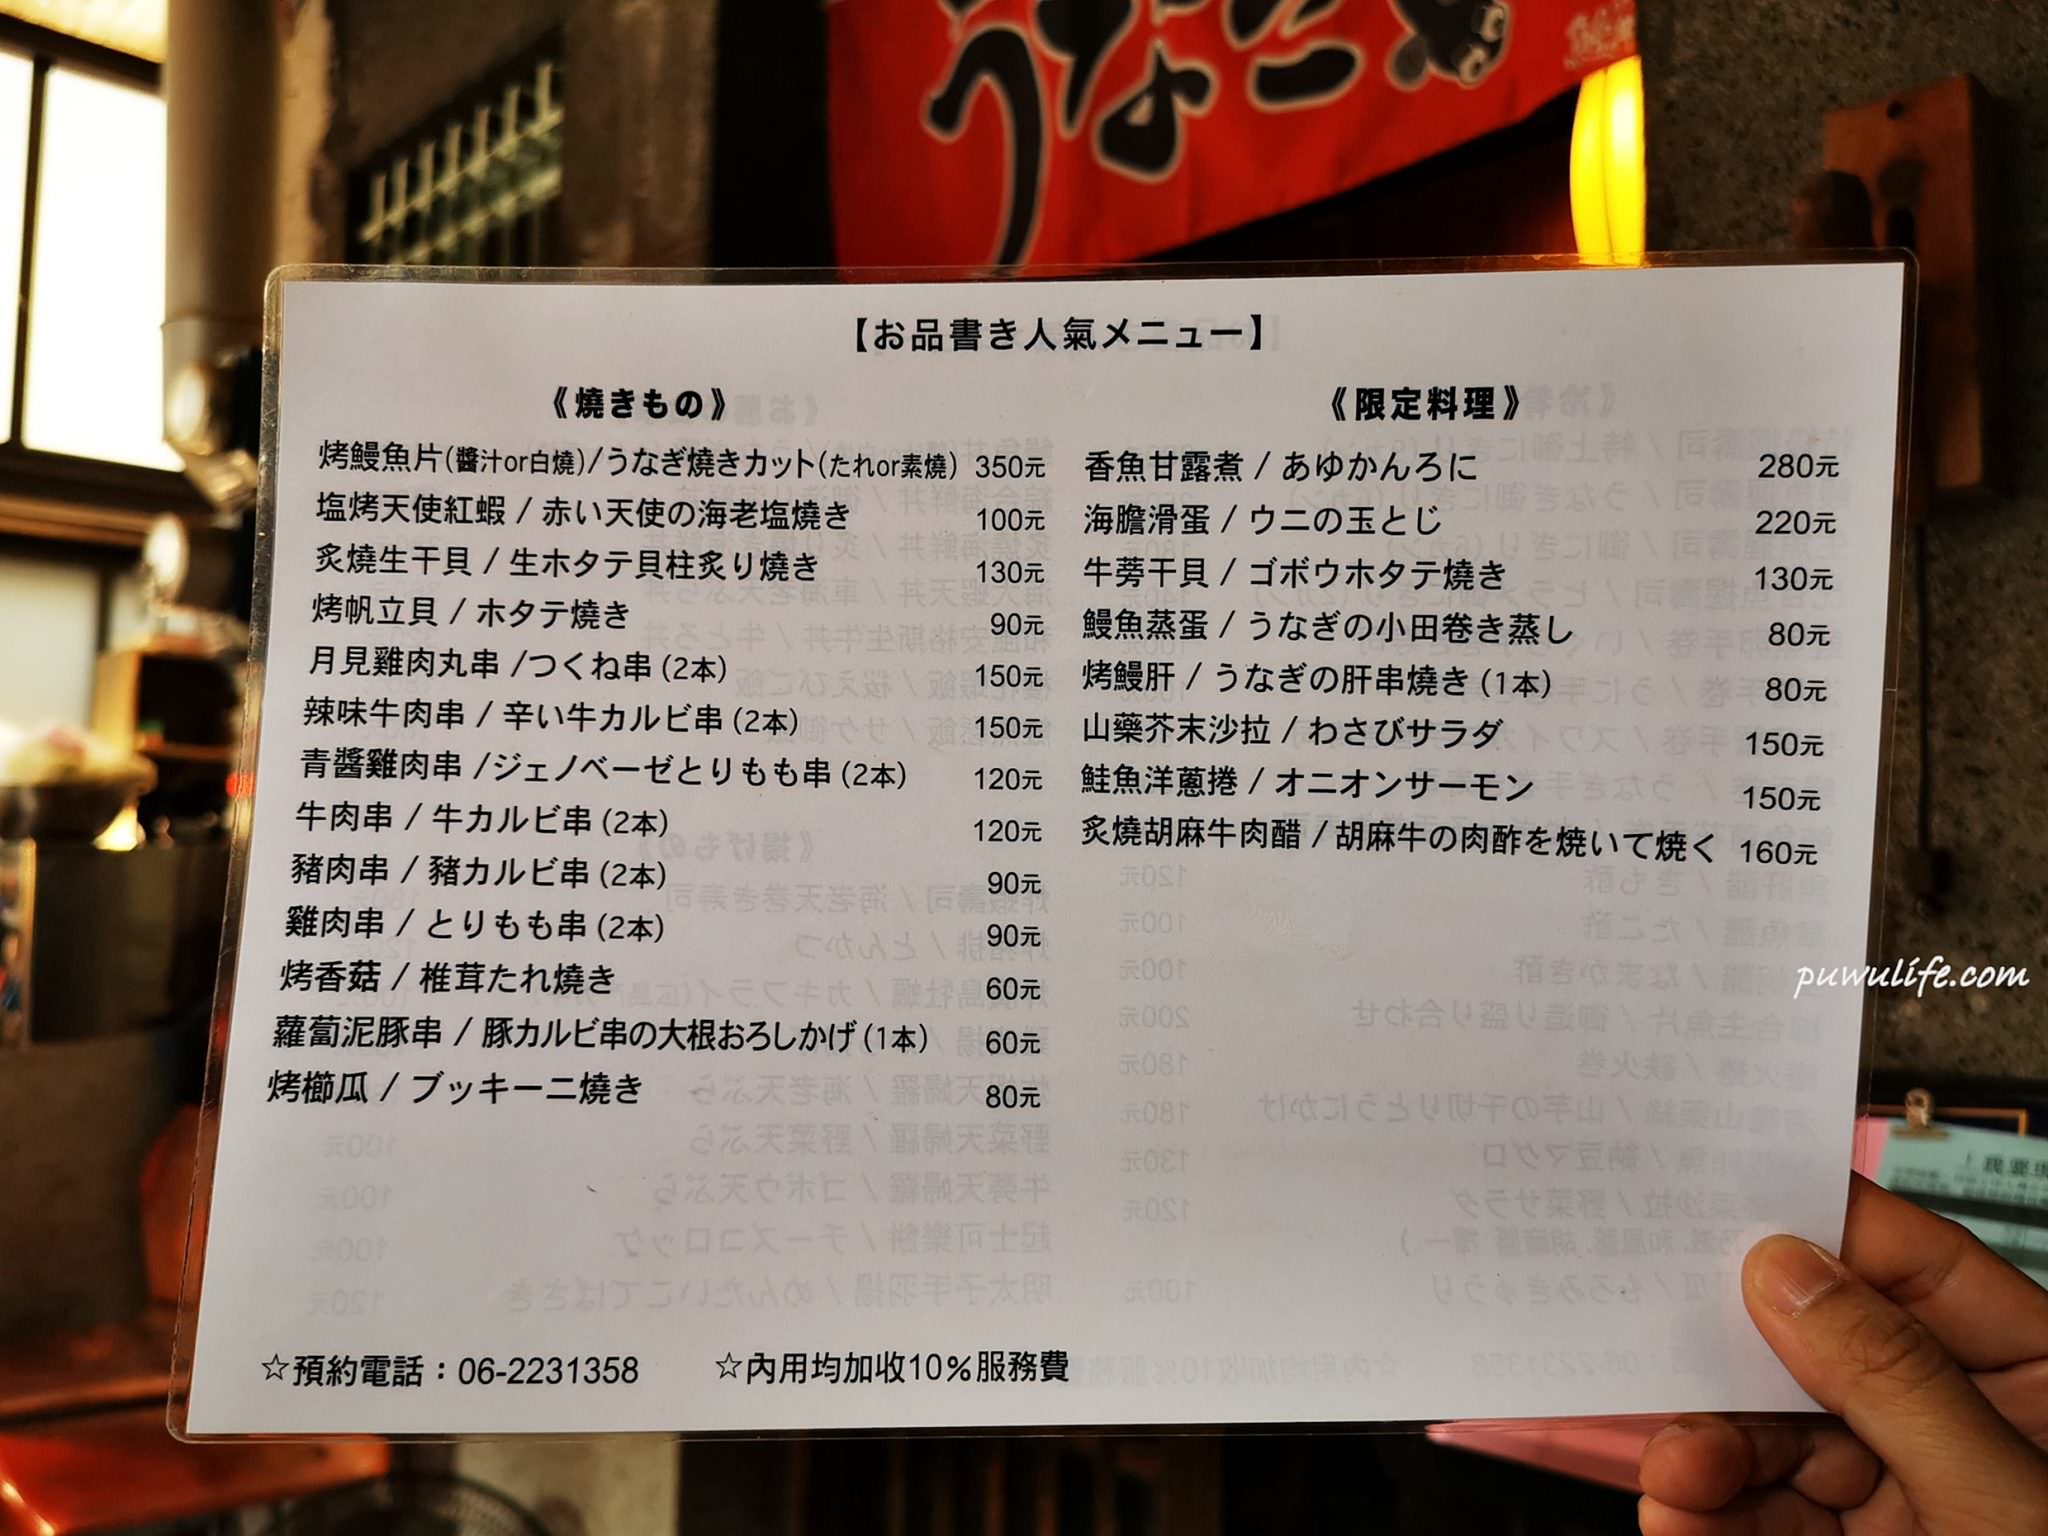 うなぎ
【お品書き人氣メニュー】
《燒きもの》
烤鰻魚片(醬汁or白燒)/うなぎ燒きカット(たれor素燒) 350元
塩烤天使紅蝦 / 赤い天使の海老塩燒き 100元
炙燒生干貝 / 生ホタテ貝柱炙り燒き 130元
烤帆立貝 / ホタテ燒き 90元
月見雞肉丸串 /つくね串 (2本) 150元
辣味牛肉串 / 辛い牛カルビ串 (2本) 150元
青醬雞肉串 /ジェノベーゼとりもも串 (2本) 120元
牛肉串 / 牛カルビ串 (2本) 120元
豬肉串 / 豬カルビ串 (2本) 90元
雞肉串 / とりもも串 (2本) 90元
烤香菇 / 椎茸たれ燒き 60元
蘿蔔泥豚串 / 豚カルビ串の大根おろしかげ (1本) 60元
烤櫛瓜 / ブッキーニ燒き 80元
《限定料理》
香魚甘露煮 / あゆかんろに 280元
海膽滑蛋 / ウニの玉とじ 220元
牛蒡干貝 / ゴボウホタテ燒き 130元
鰻魚蒸蛋 / うなぎの小田巻き蒸し 80元
烤鰻肝 / うなぎの肝串燒き (1本) 80元
山藥芥末沙拉 / わさびサラダ 150元
鮭魚洋蔥捲 / オニオンサーモン 150元
炙燒胡麻牛肉醋 / 胡麻牛の肉酢を焼いて焼く 160元
☆預約電話：06-2231358 ☆內用均加收10%服務費
puwulife.com